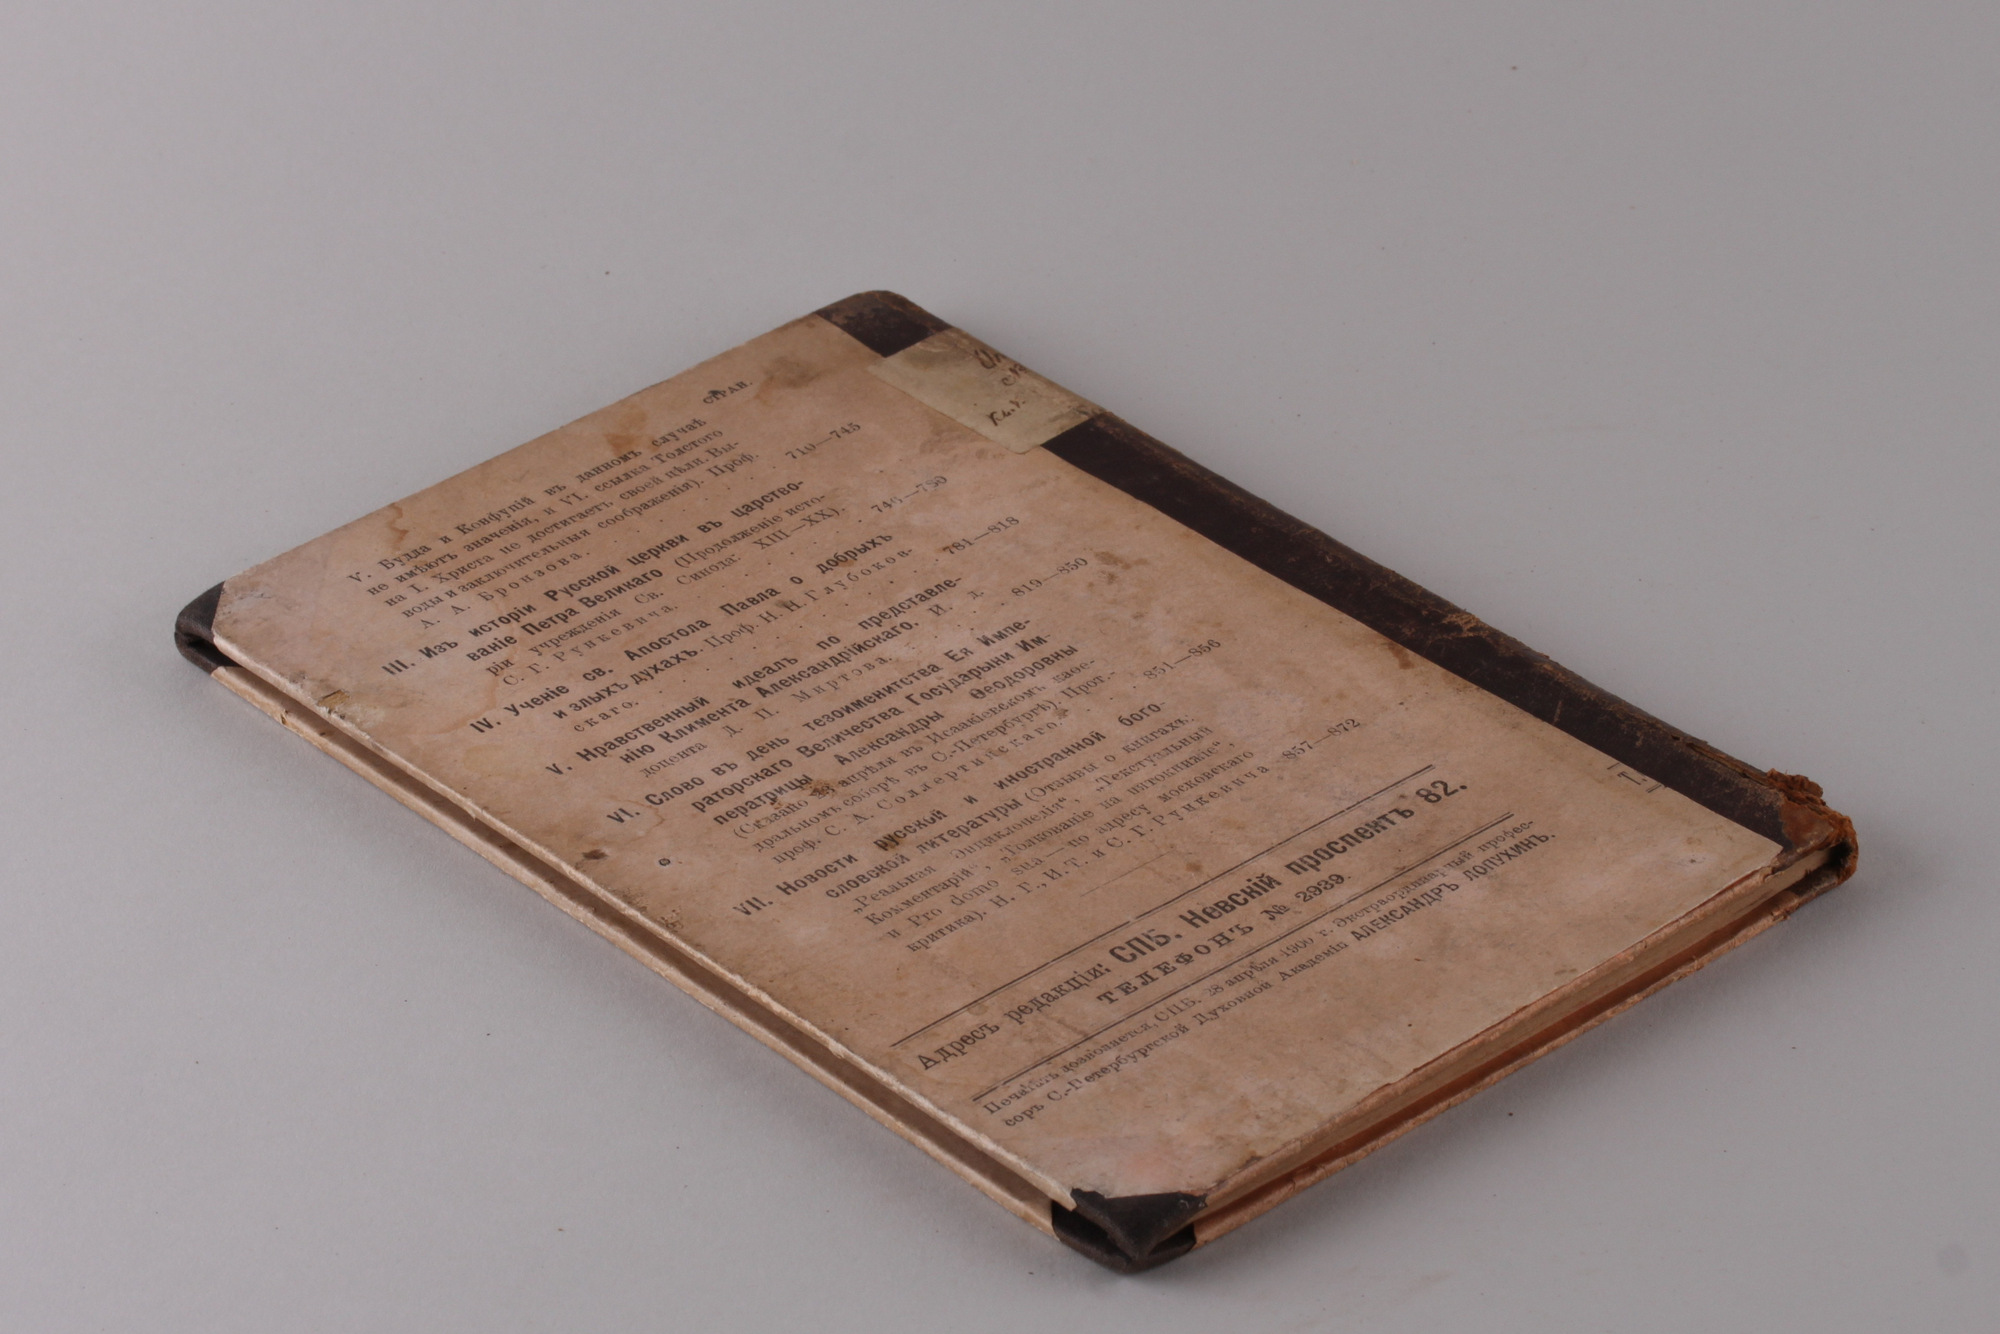 СТРАН.
V. Будда и Конфуцій въ данномъ случаѣ
не имѣютъ значенія, и VI. ссылка Толстого
на I. Христа не достигаетъ своей цѣли. Вы-
воды и заключительныя соображенія). Проф.
А. А. Бронзова. 710—745
III. Изъ исторіи Русской церкви въ царство-
ваніе Петра Великаго (Продолженіе исто-
ріи учрежденія Св. Синода: XIII—XX).
С. Г. Рункевича. 746—780
IV. Ученіе св. Апостола Павла о добрыхъ
и злыхъ духахъ. Проф. Н. Н. Глубоков-
скаго. 781—818
V. Нравственный идеалъ по представле-
нію Климента Александрійскаго. И. д.
доцента Д. П. Миртова. 819—850
VI. Слово въ день тезоименитства Ея Импе-
раторскаго Величества Государыни Им-
ператрицы Александры Ѳеодоровны
(Сказано апрѣля въ Исаакіевскомъ каѳе-
дральномъ соборѣ въ С.-Петербургѣ). Прот.-
проф. С. А. Соллертинскаго. 851—856
VII. Новости русской и иностранной бого-
словской литературы (Отзывы о книгахъ:
„Реальная Энциклопедія", „Текстуальный
Комментарій" „Толкованіе на пятокнижіе",
и Pro domo sua—по адресу московскаго
критика). Н. Г., И. Т. и С. Г. Рункевича 857—872
Адресъ редакціи: СПБ. Невскій проспектъ 82.
ТЕЛЕФОНЪ № 2939.
Печатать дозволяется, СПБ. 28 апрѣля 1900 г. Экстраординарный профес-
соръ С.-Петербургской Духовной Академіи АЛЕКСАНДРЪ ЛОПУХИНЪ.